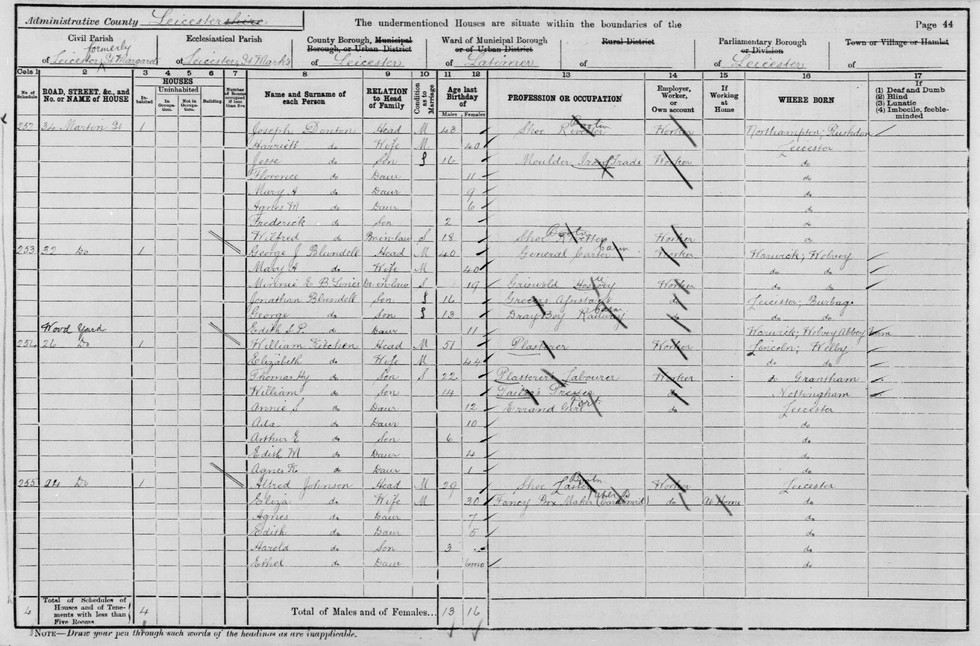 Administrative County Leicestershire
The undermentioned Houses are situate within the boundaries of the
Page 44
Civil Parish
of Leicester formerly St Margarets
Ecclesiastical Parish
of Leicester St Marks
County Borough, Municipal Borough, or Urban District
of Leicester
Ward of Municipal Borough or of Urban District
of Latimer
Rural District
of
Parliamentary Borough or Division
of Leicester
Town or Village or Hamlet
of
Cols. 1 2 3 4 5 6 7 8 9 10 11 12 13 14 15 16 17
No. of Schedule
ROAD, STREET, &c., and No. or NAME of HOUSE
HOUSES
Inhabited
Uninhabited
In Occupation.
Not in Occupation.
Building
Number of Rooms occupied if less than five
Name and Surname of each Person
RELATION to Head of Family
Condition as to Marriage
Age last Birthday of
Males Females
PROFESSION OR OCCUPATION
Employer, Worker, or Own account
If Working at Home
WHERE BORN
If (1) Deaf and Dumb (2) Blind (3) Lunatic (4) Imbecile, feeble-minded
252 34 Marton St 1 Joseph Denton Head M 43 Shoe Worker Northampton; Rushden
Harriett do Wife M 40 Leicester
Jesse do Son S 16 Moulder Iron Trade Worker do
Florence do Daur 11 do
Mary A do Daur 9 do
Agnes M do Daur 6 do
Frederick do Son 2 do
Wilfred do Bro in law S 18 Shoe Worker do
253 32 Do 1 George J Blundell Head M 40 General Carter Worker Warwick; Wolvey
Mary A do Wife M 40 do do
Minnie E B S 19 Griswold Hosiery Worker do do
Jonathan Blundell Son S 16 Grocers do Leicester; Burbage
George do Son S 13 Dray Boy Railway do do do
Wood Yard
Edith S. P. do Daur 11 Warwick; Wolvey
254 26 Do 1 William Kitchen Head M 51 Plasterer Worker Lincoln; Welby
Elizabeth do Wife M 44 do do
Thomas Hy do Son S 22 Plasterers Labourer Worker do Grantham
William do Son 14 do Nottingham
Annie S do Daur 12 Errand Girl do Leicester
Ada do Daur 10 do
Arthur E do Son 6 do
Edith M do Daur 4 do
Agnes K do Daur 1 do
255 Do 1 Alfred Johnson Head M 29 Shoe Laster Worker Leicester
Eliza do Wife M 30 Fancy Box Maker (cardboard) do At Home do
Agnes do Daur 7 do
Edith do Daur 5 do
Harold do Son 3 do
Ethel do Daur 6mo do
4 Total of Schedules of Houses and of Tenements with less than Five Rooms 4
Total of Males and of Females... 13 16
NOTE—Draw your pen through such words of the headings as are inapplicable.